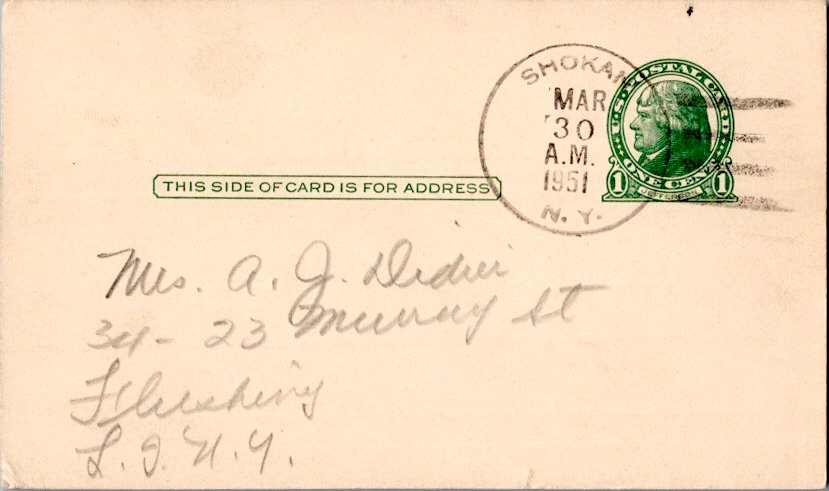 SHOKAN
MAR
30
A.M.
1951
N. Y.
U.S. POSTAL CARD
ONE CENT
1 JEFFERSON 1
THIS SIDE OF CARD IS FOR ADDRESS
Mrs. A. J. Didier
34-23 Murray St
Flushing
L. I. N. Y.